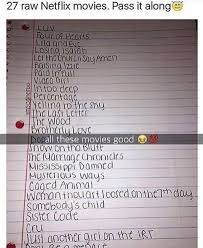 27 raw Netflix movies. Pass it along😇
LUV
Four of Hearts
Lila and Eve
Losing Isaiah
Let the Church Say Amen
Raising Izzie
Paid in Full
Video Girl
In too deep
Percentage
Yelling to the sky
The Last Letter
The Wood
Brotherly Love
all these movies good 😍💯
Snow on tha Bluff
The Marriage Chronicles
Mississippi Damned
Mysterious ways
Caged Animal
Woman thou art loosed on the 7th day
Somebody's child
Sister Code
Cru
Just another girl on the IRT